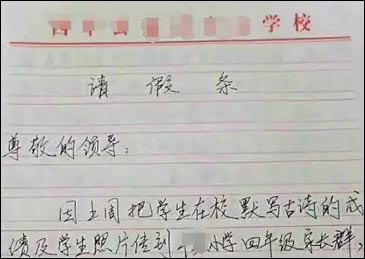 学校
请假条
尊敬的领导：
因上周把学生在校默写古诗的成
绩及学生照片传到小学四年级家长群，